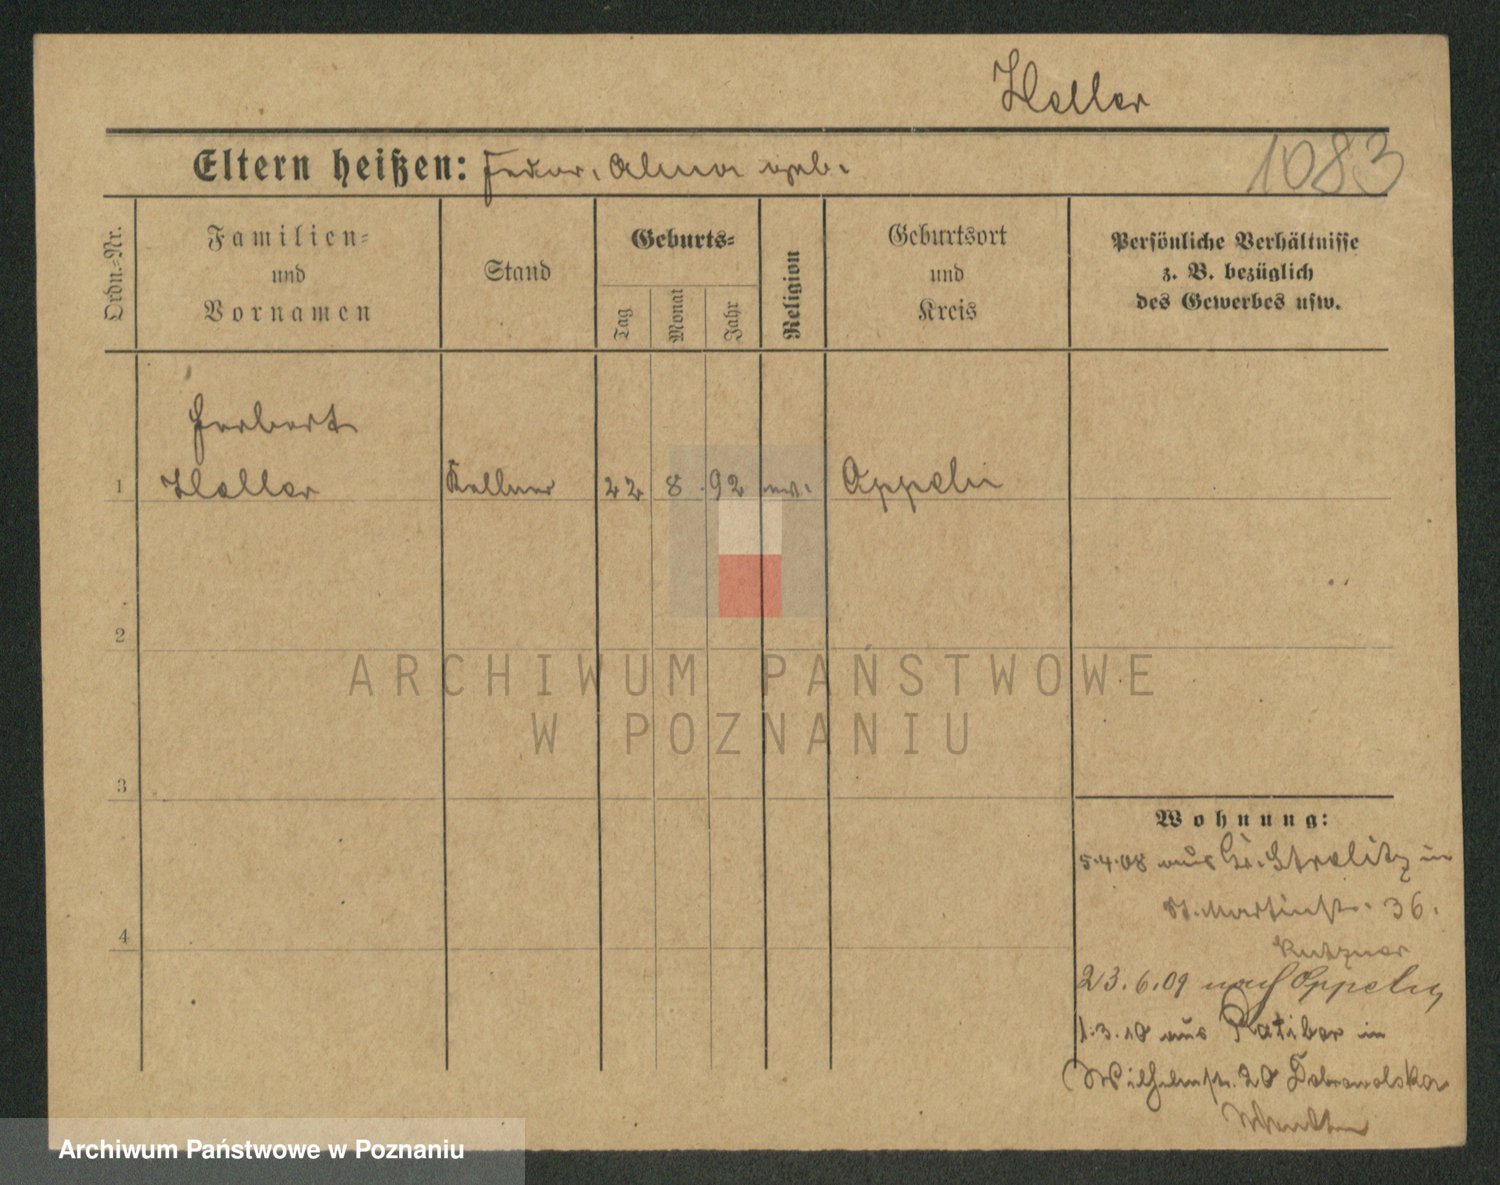 Heller
1083
Eltern heißen: Fedor, Alma geb.
Ordn.-Nr.
Familien-
und
Vornamen
Stand
Geburts-
Tag
Monat
Jahr
Religion
Geburtsort
und
Kreis
Persönliche Verhältnisse
z. B. bezüglich
des Gewerbes usw.
Herbert
1 Heller Kellner 22 8 92 ev. Oppeln
2
3
4
Wohnung:
5.4.08 aus Gr. Strelitz in
St. Martinstr. 36.
Kutzner
23.6.09 nach Oppeln
1.3.10 aus Ratibor in
Wilhelmstr. 20 Dobrowolska
ARCHIWUM PAŃSTWOWE
W POZNANIU
Archiwum Państwowe w Poznaniu